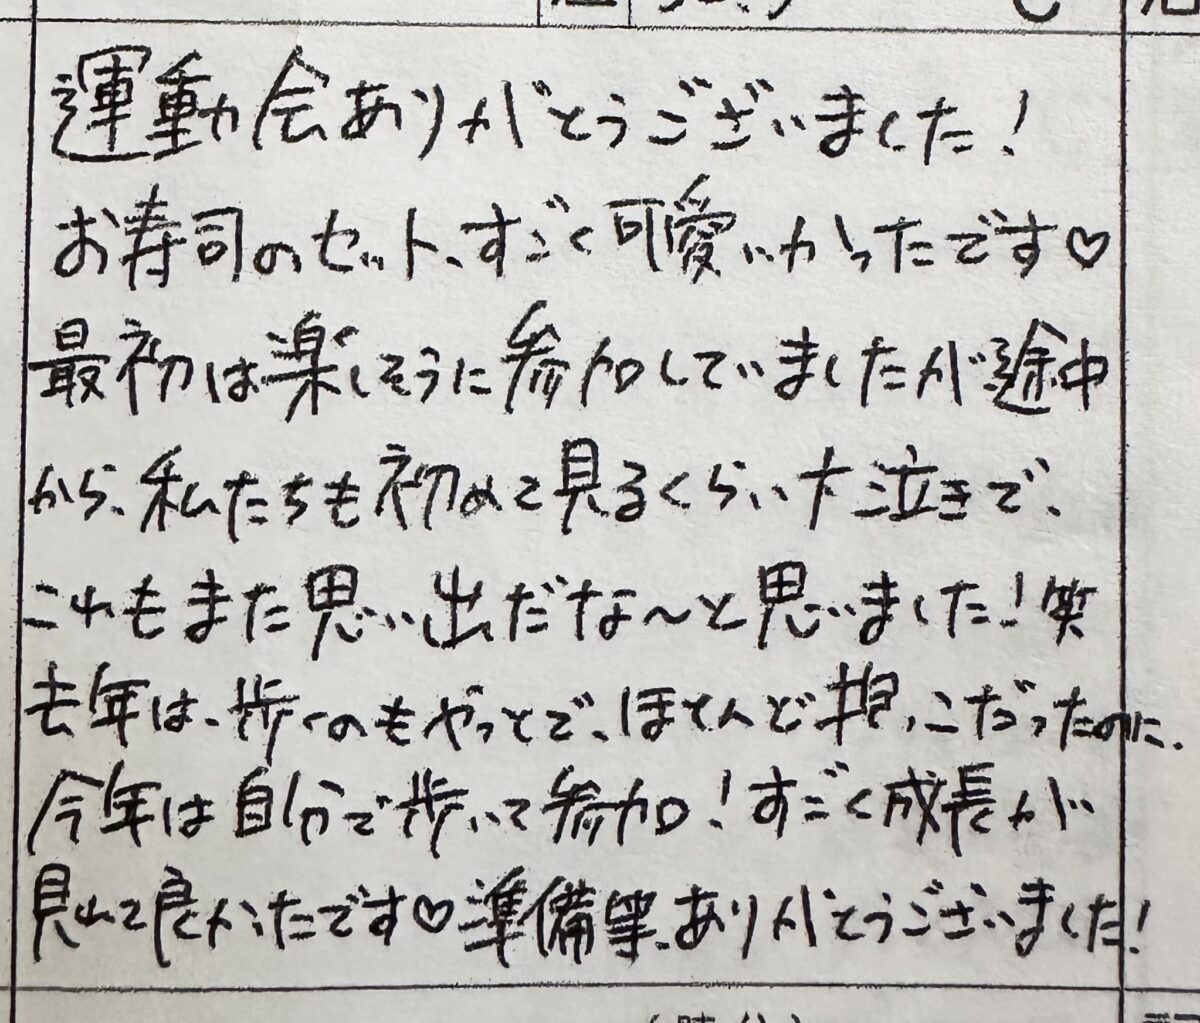 運動会ありがとうございました!
お寿司のセット、すごく可愛いかったです♡
最初は楽しそうに参加していましたが途中
から、私たちも初めて見るくらい大泣きで、
これもまた思い出だな〜と思いました!笑
去年は、歩くのもやっとで、ほとんど抱っこだったのに、
今年は自分で歩いて参加!すごく成長が
見れて良かったです♡準備等、ありがとうございました!